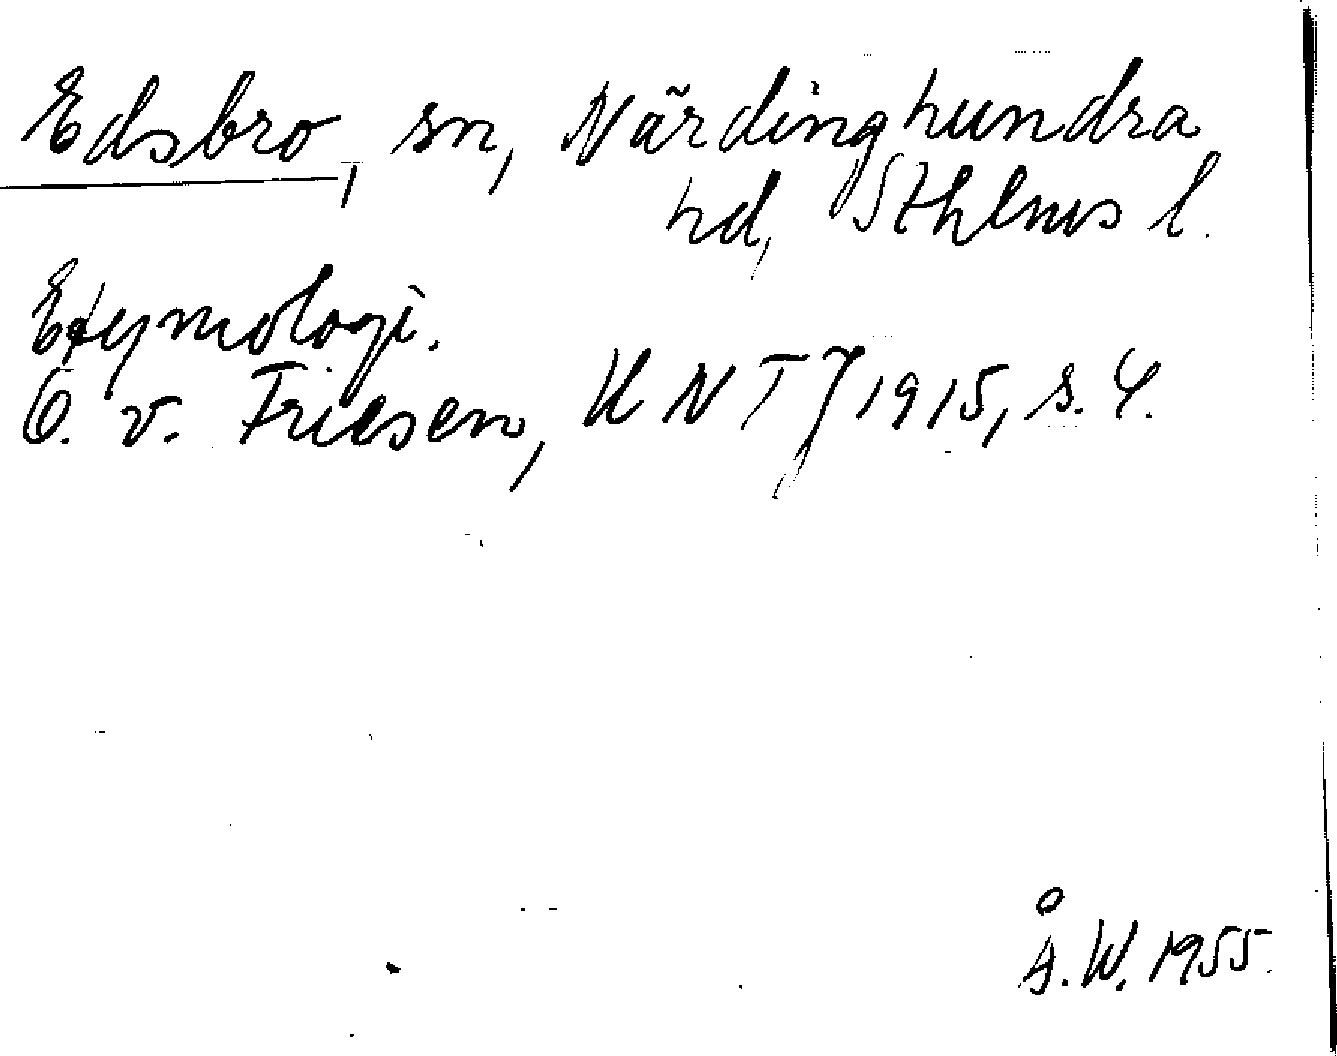 Edsbro, sn, Närdinghundra
hd, Sthlms l.
Etymologi.
O. v. Friesen, UNTJ 1915, s. 4.
Å. W. 1955.